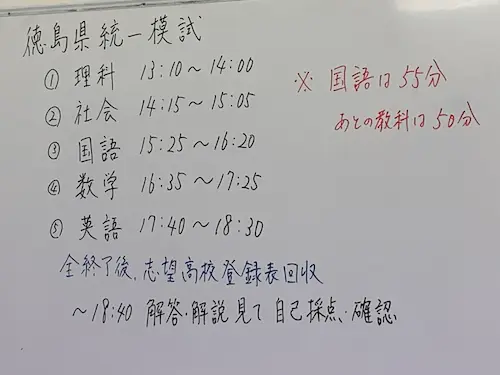 徳島県統一模試
① 理科 13:10～14:00
② 社会 14:15～15:05
③ 国語 15:25～16:20
④ 数学 16:35～17:25
⑤ 英語 17:40～18:30
※ 国語は55分
あとの教科は50分
全終了後、志望高校登録表回収
～18:40 解答・解説見て自己採点・確認